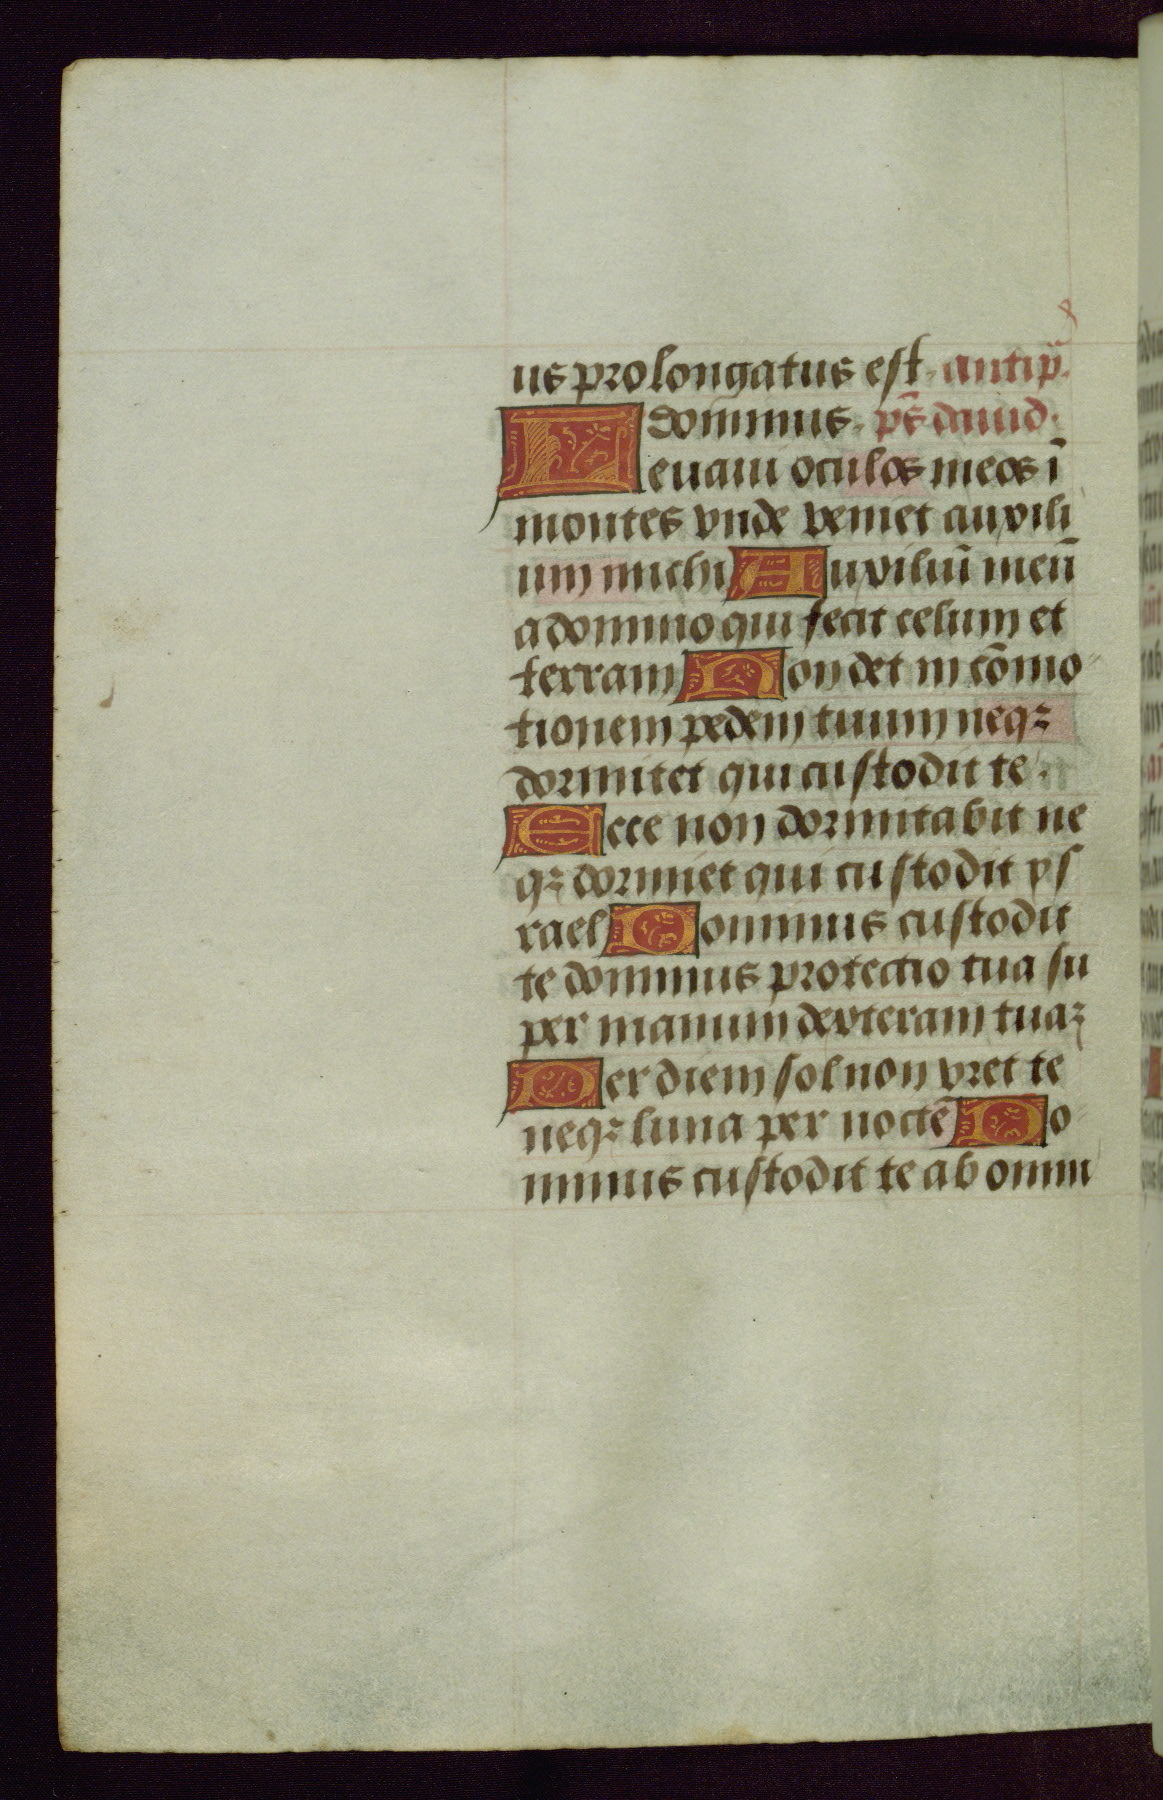 us prolongatus est. antip̄.
dominus. ps̄ dauid.
Leuaui oculos meos ī
montes vnde veniet auxili
um michi Auxiliū meū
a domino qui fecit celum et
terram Non det in cōmo
tionem pedem tuum neqꝫ
dormitet qui custodit te.
Ecce non dormitabit ne
qꝫ dormiet qui custodit ys
rael Dominus custodit
te dominus protectio tua su
per manum dexteram tuaꝫ
Per diem sol non vret te
neqꝫ luna per noctē Do
minus custodit te ab omni